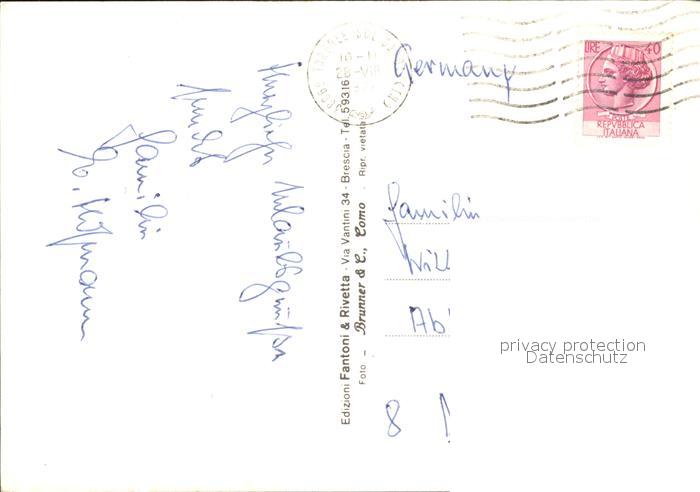 Herzliche Urlaubsgrüße
sendet
Familie
G. Hofmann
Edizioni Fantoni & Rivetta - Via Vantini 34 - Brescia - Tel. 59316
Foto - Brunner & C., Como. Ripr. vietata
Germany
LIRE 40
POSTE
REPVBBLICA
ITALIANA
Familie
Will
Ab
8
privacy protection
Datenschutz